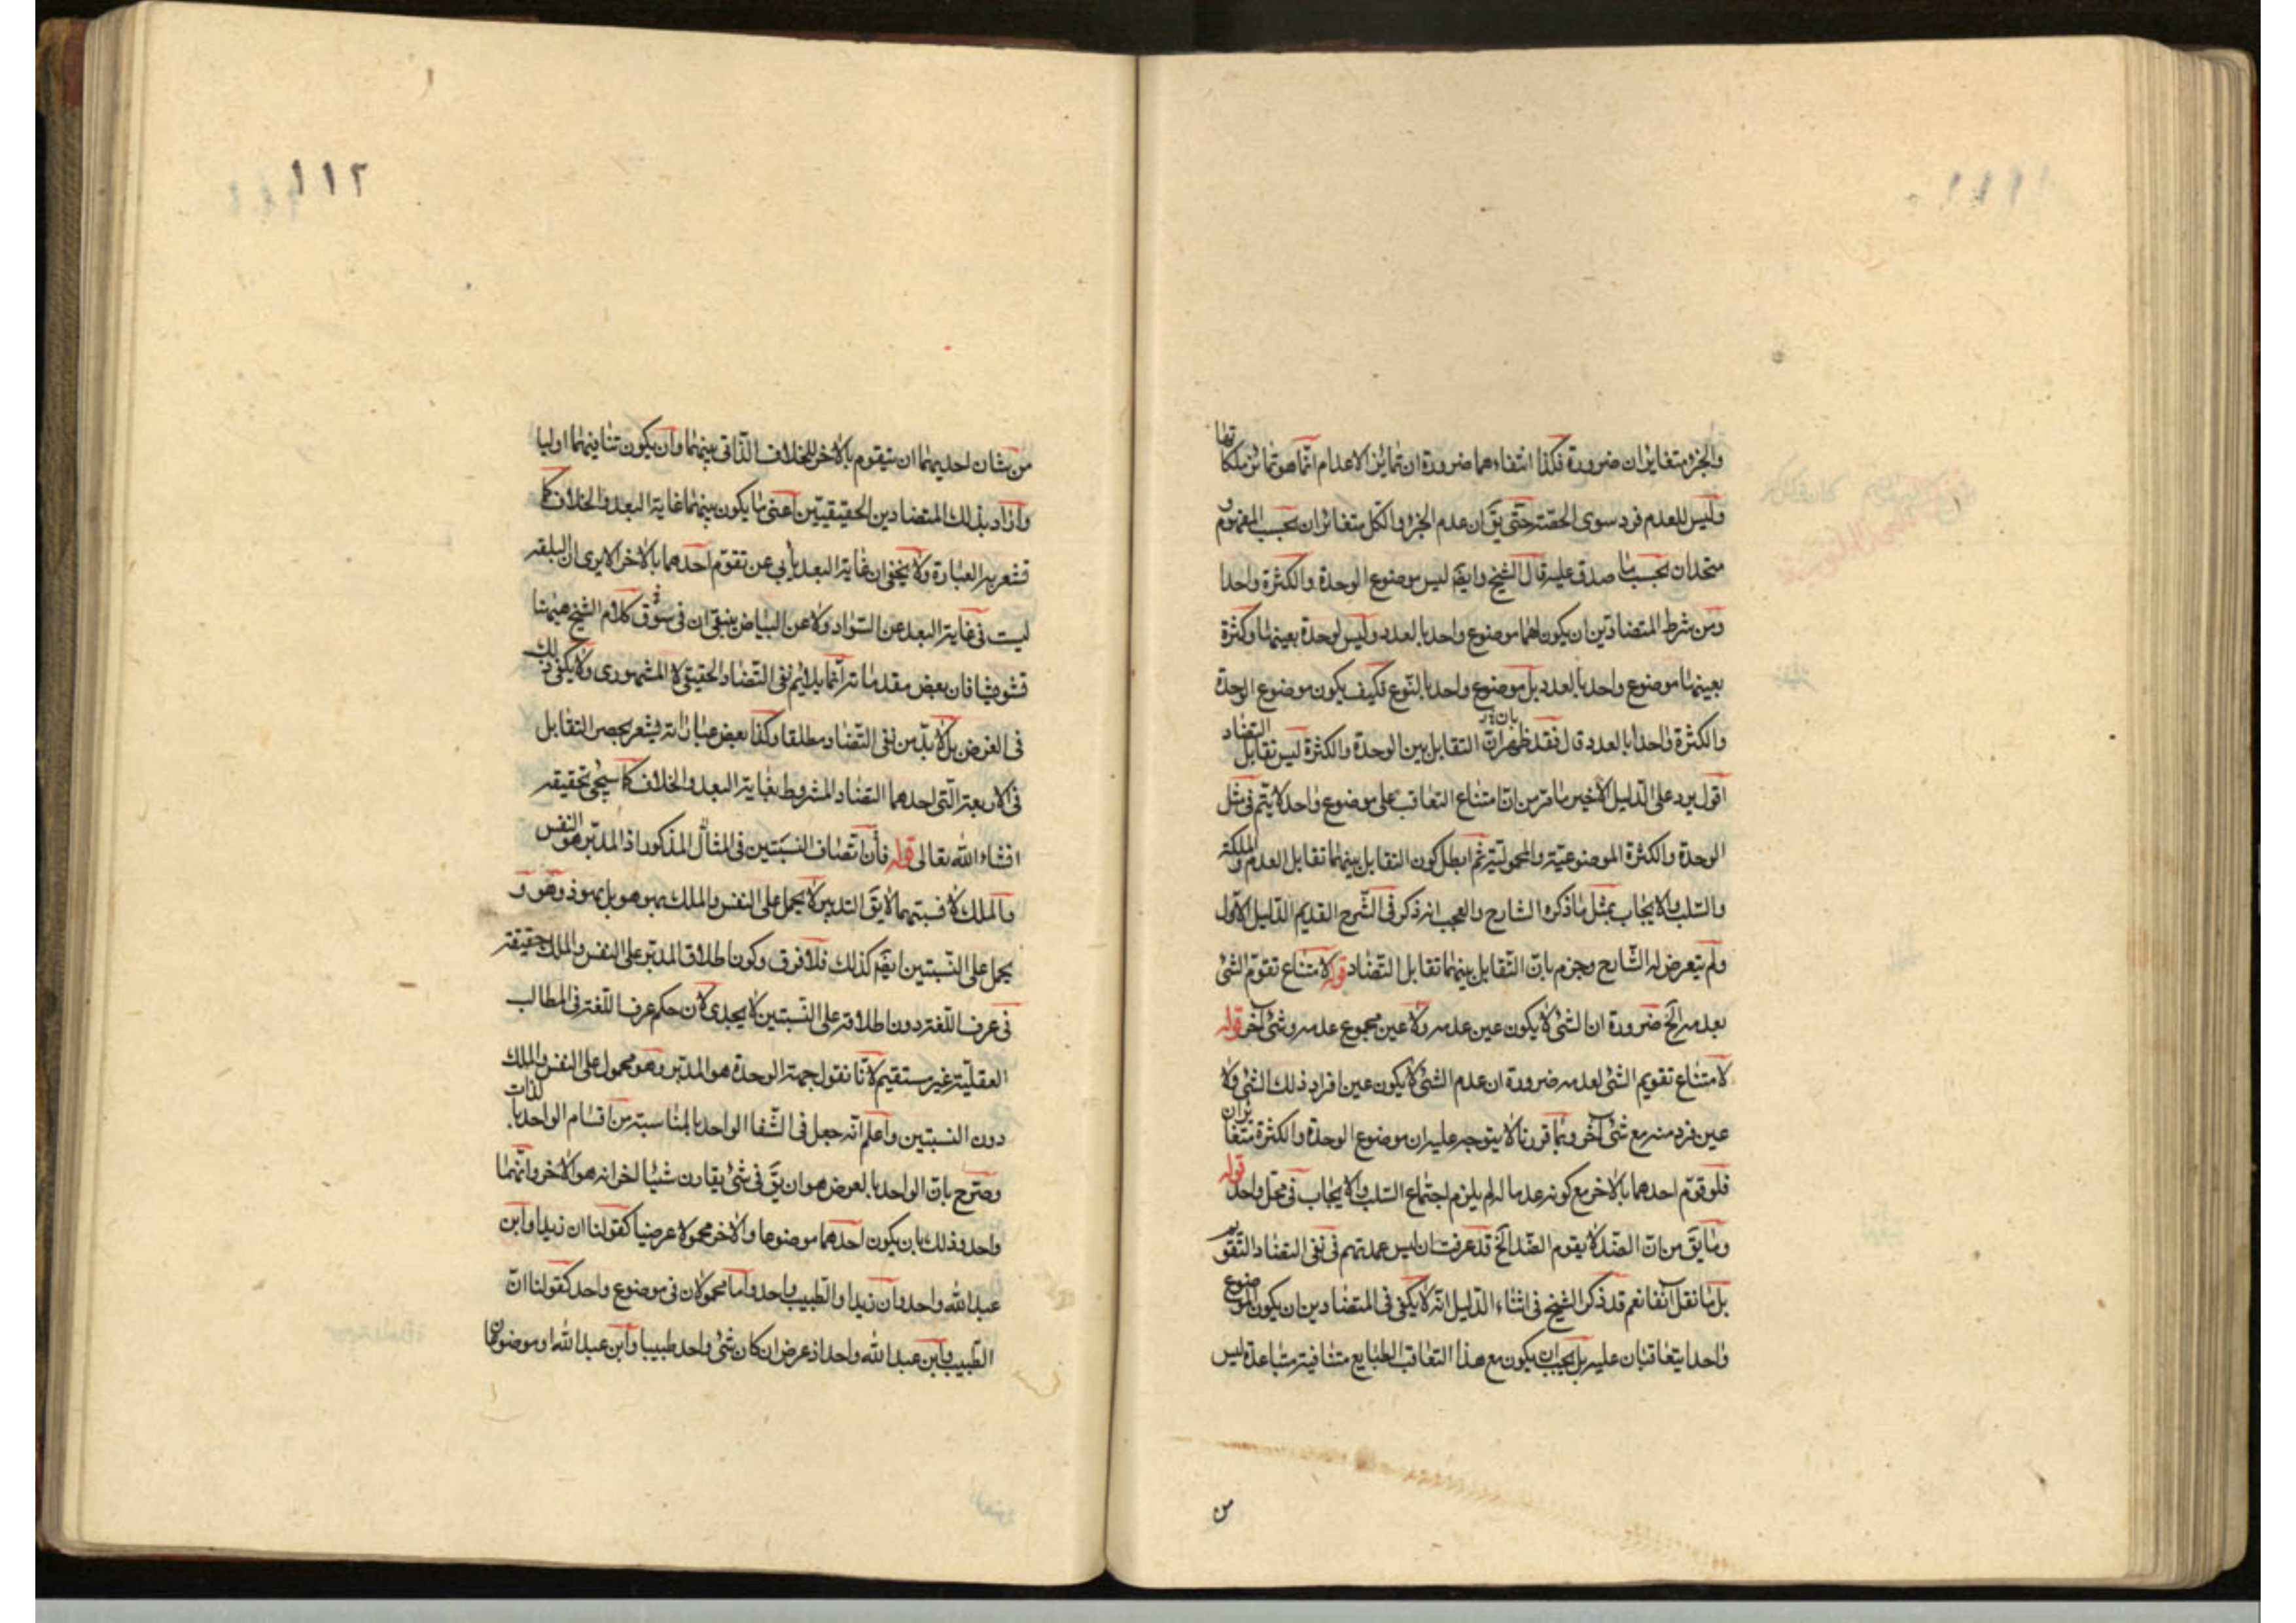 والجزء متغايران ضرورة فكذا انتفاءهما ضرورة ان تمايز الاعدام انما هو تمايز ملكاتها
وليس للعدم فرد سوى الحصّة حتى يقّ ان عدم الجزء والكل متغائران بحسب المفهوم و
متحدان بحسب ما صدق عليه قال الشيخ وايضَا ليس موضوع الوحدة والكثرة واحدا
ومن شرط المتضادّين ان يكون لهما موضوع واحد بالعدد وليس لوحدة بعينها وكثرة
بعينها موضوع واحد بالعدد بل موضوع واحد بالنوع فكيف يكون موضوع الوحدة
والكثرة واحدا بالعدد قال فقد ظهر ان التقابل بين الوحدة والكثرة ليس تقابل التضاد
اقول يرد على الدليل الاخير ما مر من ان امتناع التعاقب على موضوع واحد لا يتم فى مثل
الوحدة والكثرة الموضوعيّة والمحمولية ثم ابطل كون التقابل بينهما تقابل العدم والملكة
والسّلب والايجاب بمثل ما ذكره الشارح والعجب انه ذكر فى الشّرح القديم الدّليل الاوّل
ولم يتعرض له الشّارح وجزم بانّ التّقابل بينهما تقابل التّضاد قوله لامتناع تقوّم الشئ
بعدمه الخ ضرورة ان الشئ لا يكون عين عدمه ولا عين مجموع عدمه وشئ آخر قوله
لامتناع تقويم الشئ لعدمه ضرورة ان عدم الشئ لا يكون عين افراد ذلك الشئ ولا
عين فرد منه مع شئ آخر وبما قررنا لا يتوجه عليه ان موضوع الوحدة والكثرة متغايران
فلو قوّم احدهما بالاخر مع كونه عدما له لم يلزم اجتماع السّلب والايجاب فى محل واحد قوله
وما يقّ من انّ الضّد لا يقوم الضّد الخ قد عرفت ان ليس عمدتهم فى نفى التضاد التقوّ
بل ما نقل آنفا نعم قد ذكر الشيخ فى اثناء الدّليل انّه لا يكفى فى المتضادين ان يكون الموضوع
واحدا يتعاقبان عليه بل يجب ان يكون مع هذا التعاقب الطبايع متنافية متباعدة ليس
من
١١٢
من شان احديهما ان يتقوم بالاخر للخلاف الذّاتى بينهما وان يكون تنافيهما اوليا
واراد بذلك المتضادين الحقيقيّين اعنى ما يكون بينهما غاية البعد والخلاف كما
تشعر به العبارة ولا يخفى ان غاية البعد يأبى عن تقوّم احدهما بالاخر الا يرى ان البلقه
ليست فى غاية البعد عن السّواد ولا عن البياض بنفى ان فى سوق كلام الشيخ هيهنا
تشويشا فان بعض مقدماته انّما يلائم نفى التّضاد الحقيقى لا المشهورى ولا يكفى ذلك
فى الغرض بل لا بدّ من نفى التّضاد مطلقا وكذا بعض عباراته يشعر بحصر التقابل
فى الاربعة الّتى احدهما التضاد المشروط بغاية البعد والخلاف كما سيجئ تحقيقه
انشاء الله تعالى قوله فأن اتّصاف النسبَتين فى المثال المذكور اذ المدبّر هو النفس
والملك لا نسبتهما لا يقّ التدبير لا يحمل على النفس والملك بهو هو بل بهو ذو هو و
يحمل على النّسبتين ايضَا كذلك فلا فرق وكون اطلاق المدبّر على النفس والملك حقيقة
فى عرف اللّغة دون اطلاقه على النّسبتين لا يجدى لان حكم عرف اللّغة فى المطالب
العقليّة غير مستقيم لانّا نقول جهة الوحدة هو المدبّر وهو محمول على النفس والملك
دون النسبتين واعلم انّه جعل فى الشّفا الواحد بالمناسبة من اقسام الواحد بالذات
وصّرح بانّ الواحد بالعرض هو ان يقّ فى شئ يقارن شيئا اخر انه هو الاخر وانّهما
واحد وذلك بان يكون احدهما موضوعا والاخر محمولا عرضيا كقولنا ان زيدا وابن
عبد الله واحد وان زيدا والطّبيب واحد واما محمولان فى موضوع واحد كقولنا انّ
الطّبيب وابن عبد الله واحد اذ عرض ان كان شئ واحد طبيبا وابن عبد الله او موضوعان